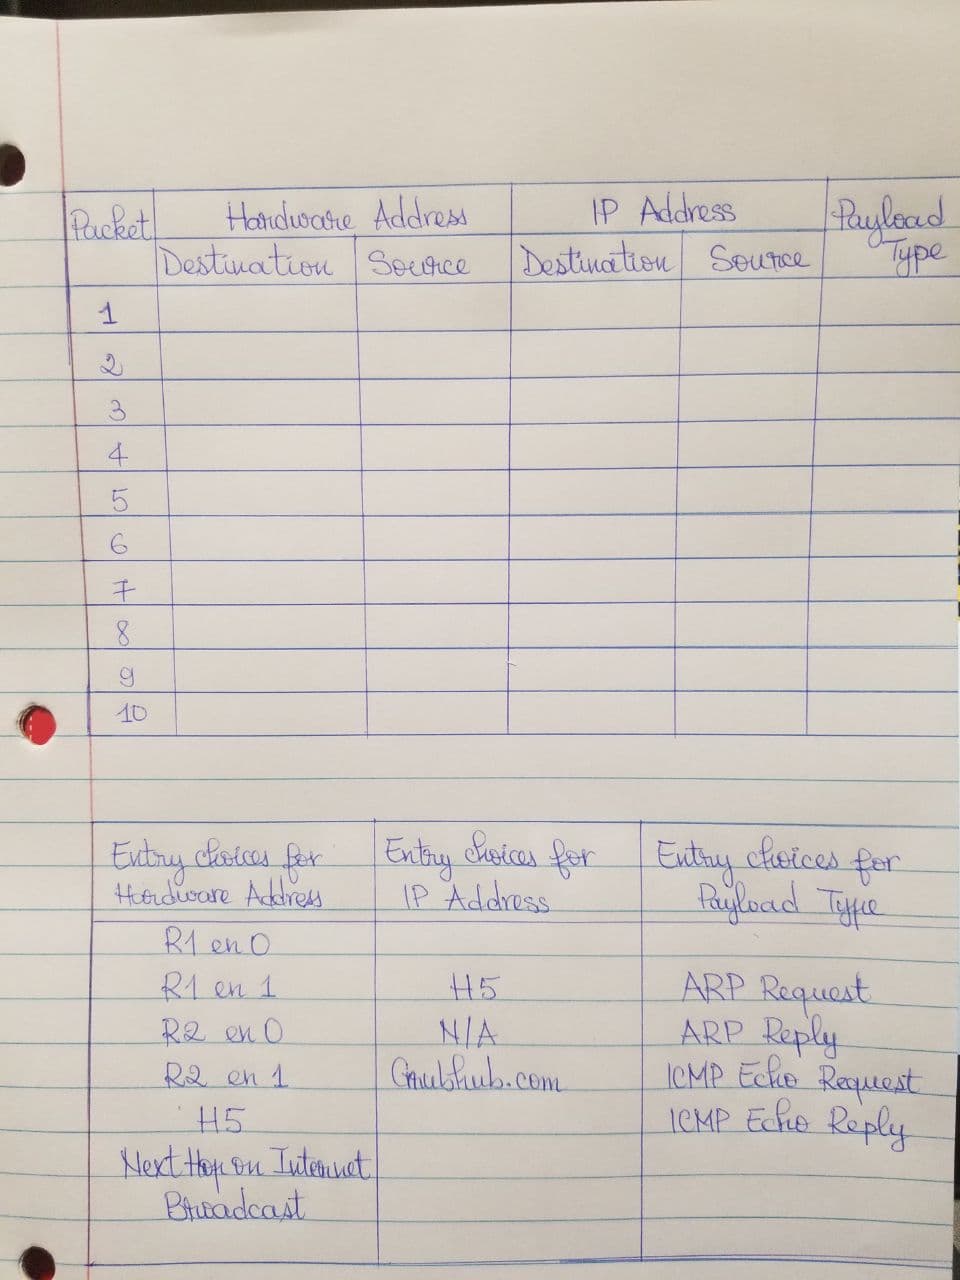 Packet Hardware Address IP Address Payload Type
Destination Source Destination Source
1
2
3
4
5
6
7
8
9
10
Entry choices for Hardware Address Entry choices for IP Address Entry choices for Payload Type
R1 en 0
R1 en 1 H5 ARP Request
R2 en 0 N/A ARP Reply
R2 en 1 Grubhub.com ICMP Echo Request
H5 ICMP Echo Reply
Next Hop on Internet
Broadcast